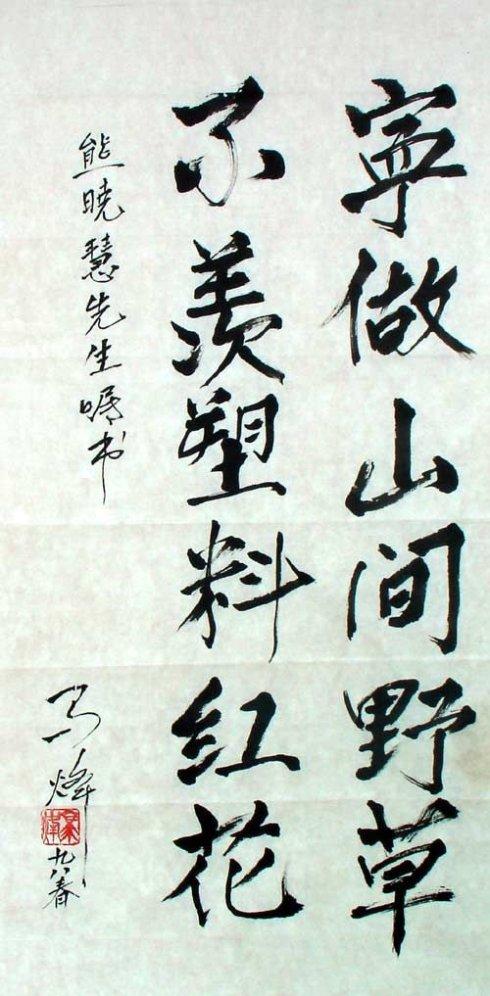 寧做山间野草
不羡塑料红花
熊晓慧先生嘱书
马烽
九八春